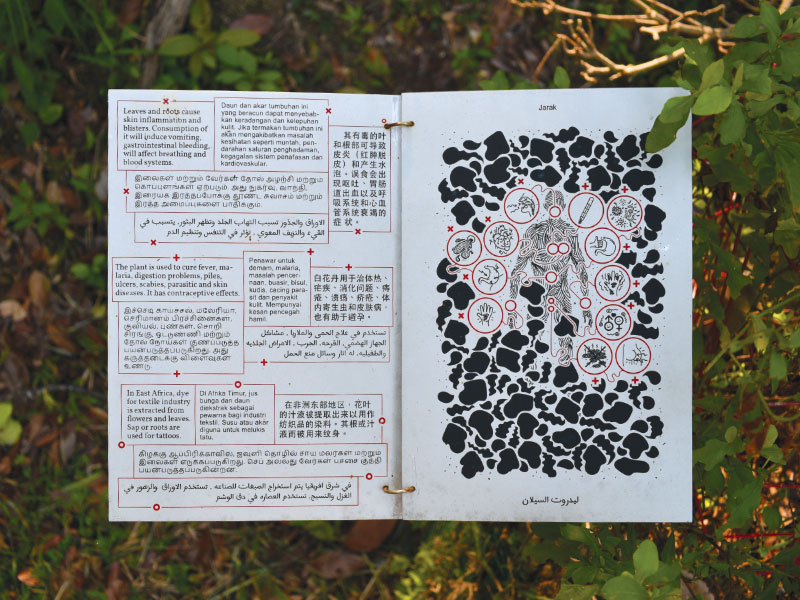 Leaves and roots cause
skin inflammation and
blisters. Consumption of
it will induce vomiting,
gastrointestinal bleeding,
will affect breathing and
blood systems.
Daun dan akar tumbuhan ini
yang beracun dapat menyebab-
kan keradangan dan kelepuhan
kulit. Jika termakan tumbuhan ini
akan mengakibatkan masalah
kesihatan seperti muntah, pen-
darahan saluran penghadaman,
kegagalan sistem penafasan dan
kardiovaskular.
其有毒的叶
和根部可导致
皮炎（红肿脱
皮）和产生水
泡。误食会出
现呕吐、胃肠
道出血以及呼
吸系统和心血
管系统衰竭的
症状。
இலைகள் மற்றும் வேர்கள் தோல் அழற்சி மற்றும்
கொப்புளங்கள் ஏற்படும் அது நுகர்வு, வாந்தி,
இரைப்பை சுவாசம் மற்றும்
இரத்த அமைப்புகளை பாதிக்கும்.
الاوراق والجذور تسبب التهاب الجلد وتظهر البثور. يتسبب في
القيء والنزيف المعوي. تؤثر في التنفس وتنظيم الدم
The plant is used to cure fever, ma-
laria, digestion problems, piles,
ulcers, scabies, parasitic and skin
diseases. It has contraceptive effects.
Penawar untuk
demam, malaria,
masalah pencer-
naan, buasir, bisul,
kuda, cacing para-
sit dan penyakit
kulit. Mempunyai
kesan pencegah
hamil.
白花丹用于治体热、
疟疾、消化问题、痔
疮、溃疡、疥疮、体
内寄生虫和皮肤病，
也有助于避孕。
இச்செடி காய்ச்சல், மலேரியா,
செரிமானப் பிரச்சினைகள்,
குவியல், புண்கள், சொறி
சிரங்கு, ஒட்டுண்ணி மற்றும்
தோல் நோய்கள் குணப்படுத்த
பயன்படுத்தப்படுகிறது. அது
கருத்தடைக்கு விளைவுகள்
உண்டு.
تستخدم في علاج الحمى والملاريا. مشاكل
الجهاز الهضمي. القرحه. الجرب. الامراض الجلديه
والطفيليه. له آثار وسائل منع الحمل
In East Africa, dye
for textile industry
is extracted from
flowers and leaves.
Sap or roots are
used for tattoos.
Di Afrika Timur, jus
bunga dan daun
diekstrak sebagai
pewarna bagi industri
tekstil. Susu atau akar
diguna untuk melukis
tatu.
在非洲东部地区，花叶
的汁液被提取出来以用作
纺织品的染料。其根或汁
液而被用来纹身。
கிழக்கு ஆப்பிரிக்காவில், ஜவுளி தொழில் சாய மலர்கள் மற்றும்
இலைகள் எடுக்கப்படுகிறது. செப் அல்லது வேர்கள் பச்சை குத்தி
பயன்படுத்தப்படுகின்றன.
في شرق افريقيا يتم استخراج الصبغات للصناعه. تستخدم الاوراق والزهور في
الغزل والنسيج. تستخدم العصاره في دق الوشم
Jarak
ليدروت السيلان